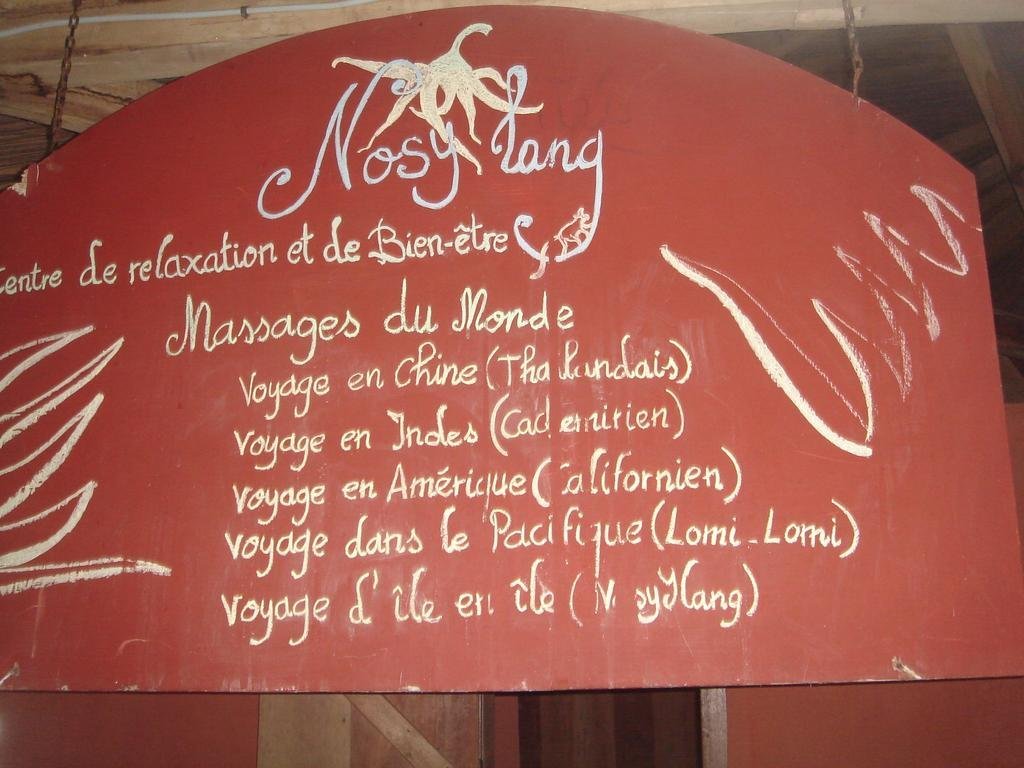 Nosy Ylang
Centre de relaxation et de Bien-être
Massages du Monde
Voyage en Chine (Thailandais)
Voyage en Indes (Cachemirien)
Voyage en Amérique (Californien)
Voyage dans le Pacifique (Lomi-Lomi)
Voyage d'île en île (NosyYlang)